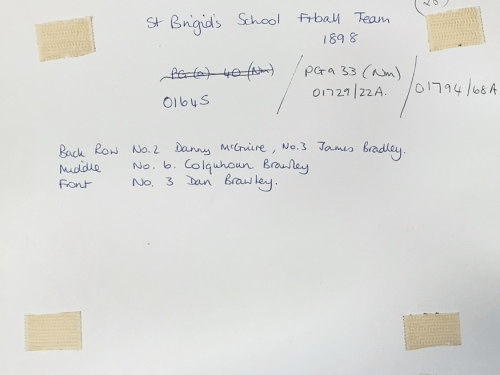 (28)
St Brigid's School Ftball Team
1898
PG(a) 40 (Nm) / PGa 33 (Nm) /
01645 01729/22A. 01794/68A
Back Row No.2 Danny McGuire, No.3 James Bradley.
Middle No. 6. Colquhoun Brawley
Front No. 3 Dan Brawley.